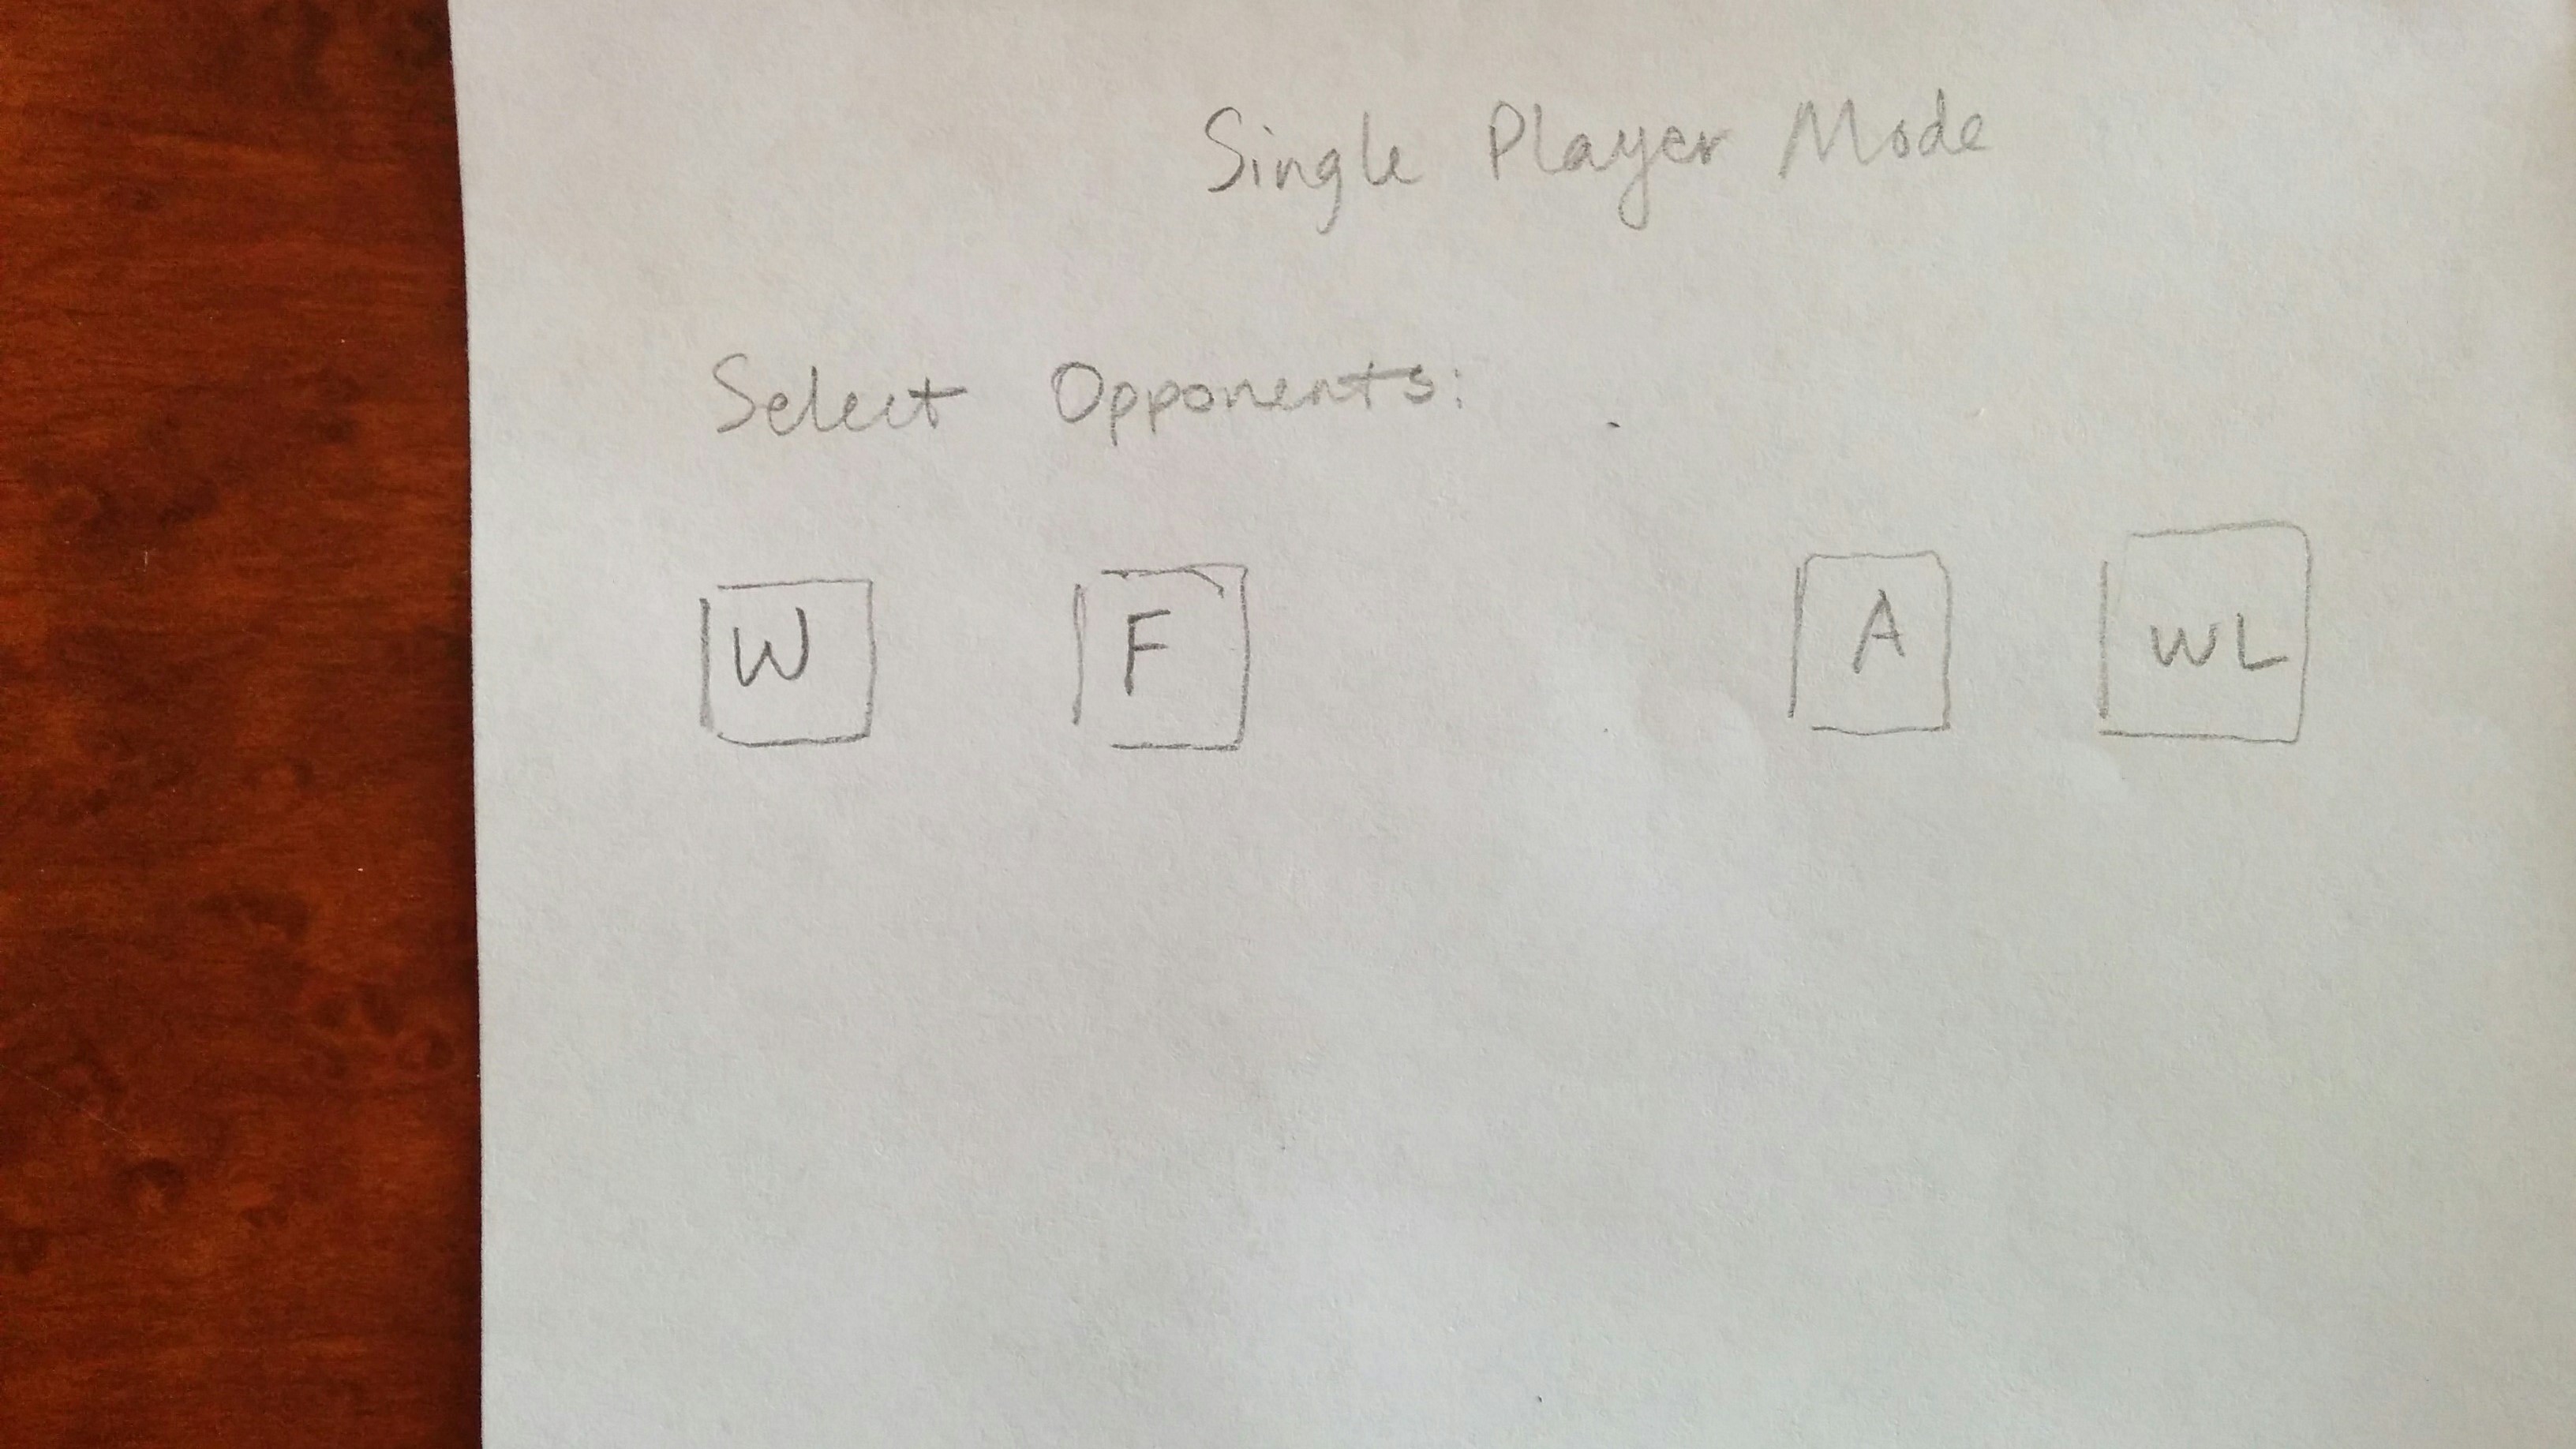 Single Player Mode
Select Opponents:
W F A WL